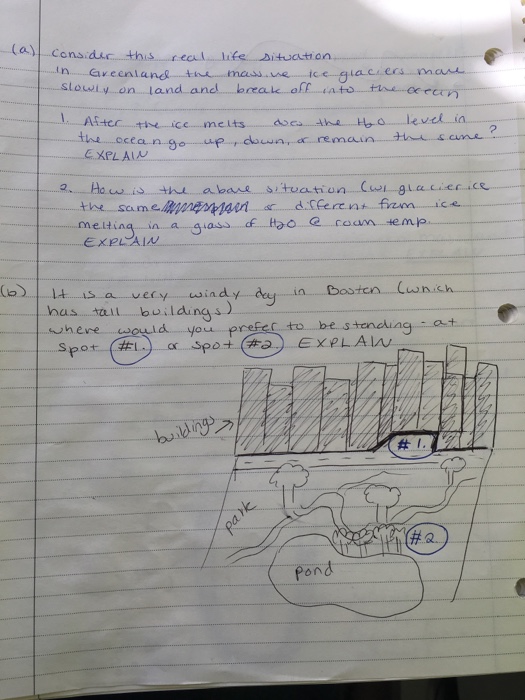 (a) Consider this real life situation
In Greenland the massive ice glaciers move
slowly on land and break off into the ocean
1. After the ice melts does the H2O level in
the ocean go up, down, or remain the same?
EXPLAIN
2. How is the above situation (w/ glacier ice
the same or different from ice
melting in a glass of H2O @ room temp.
EXPLAIN
(b) It is a very windy day in Boston (which
has tall buildings)
where would you prefer to be standing - at
spot #1. or spot #2. EXPLAIN
buildings
#1.
park
#2.
pond